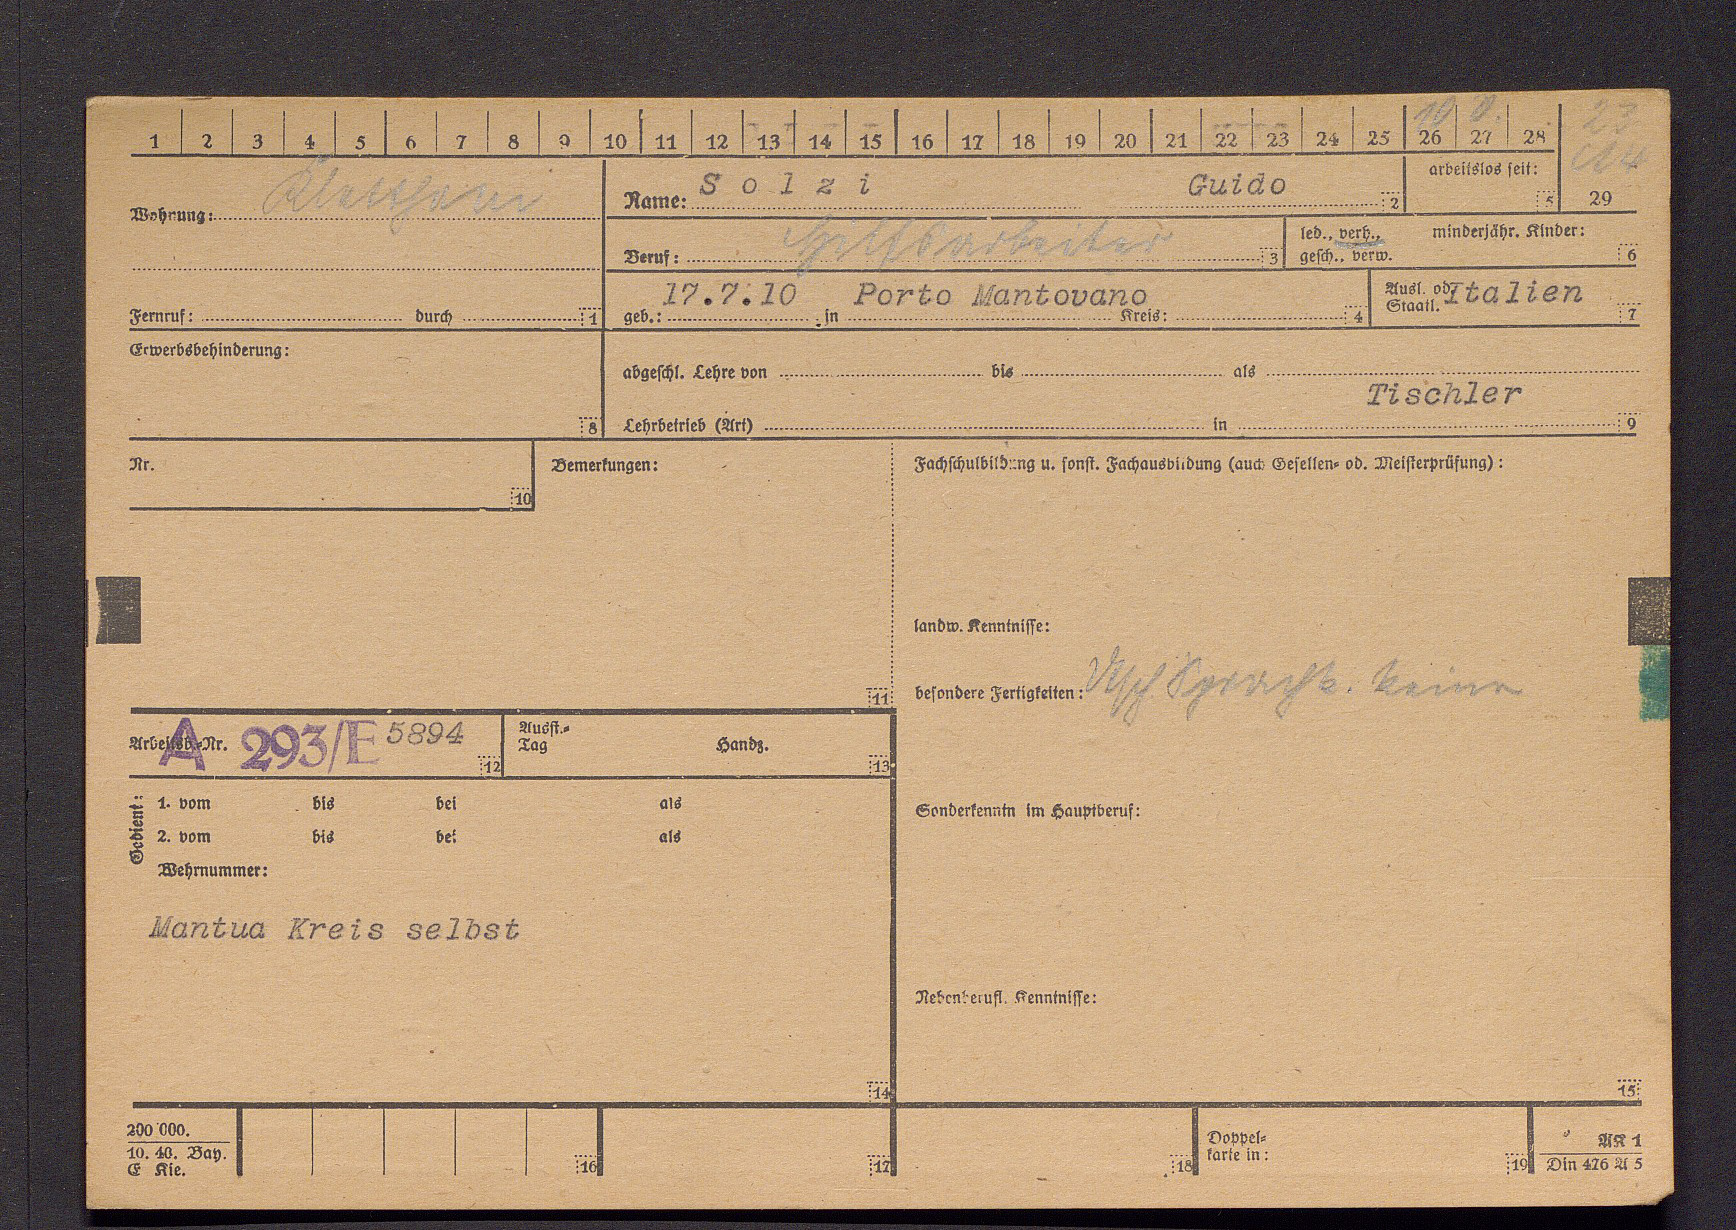 1 2 3 4 5 6 7 8 9 10 11 12 13 14 15 16 17 18 19 20 21 22 23 24 25 26 27 28
23
Wohnung:
Name: Solzi Guido 2
arbeitslos seit: 5
29
Beruf: Hilfsarbeiter 3
led., verh., gesch., verw.
minderjähr. Kinder: 6
Fernruf: durch 1
geb.: 17.7.10 in Porto Mantovano Kreis: 4
Ausl. od. Staatl. Italien 7
Erwerbsbehinderung: 8
abgeschl. Lehre von bis als
Tischler
Lehrbetrieb (Art) in 9
Nr. 10
Bemerkungen: 11
Fachschulbildung u. sonst. Fachausbildung (auch Gesellen- od. Meisterprüfung):
landw. Kenntnisse:
besondere Fertigkeiten: Dtsch Sprachk. keine
Arbeitsb.-Nr. A 293/E 5894 12
Ausst.-Tag Handz. 13
Sonderkenntn im Hauptberuf:
Gedient:
1. vom bis bei als
2. vom bis bei als
Wehrnummer:
Mantua Kreis selbst
14
Nebenberufl. Kenntnisse:
15
200 000.
10. 40. Bay.
E Kie.
16
17
18
Doppel-
karte in: 19
AK 1
Din 476 A 5